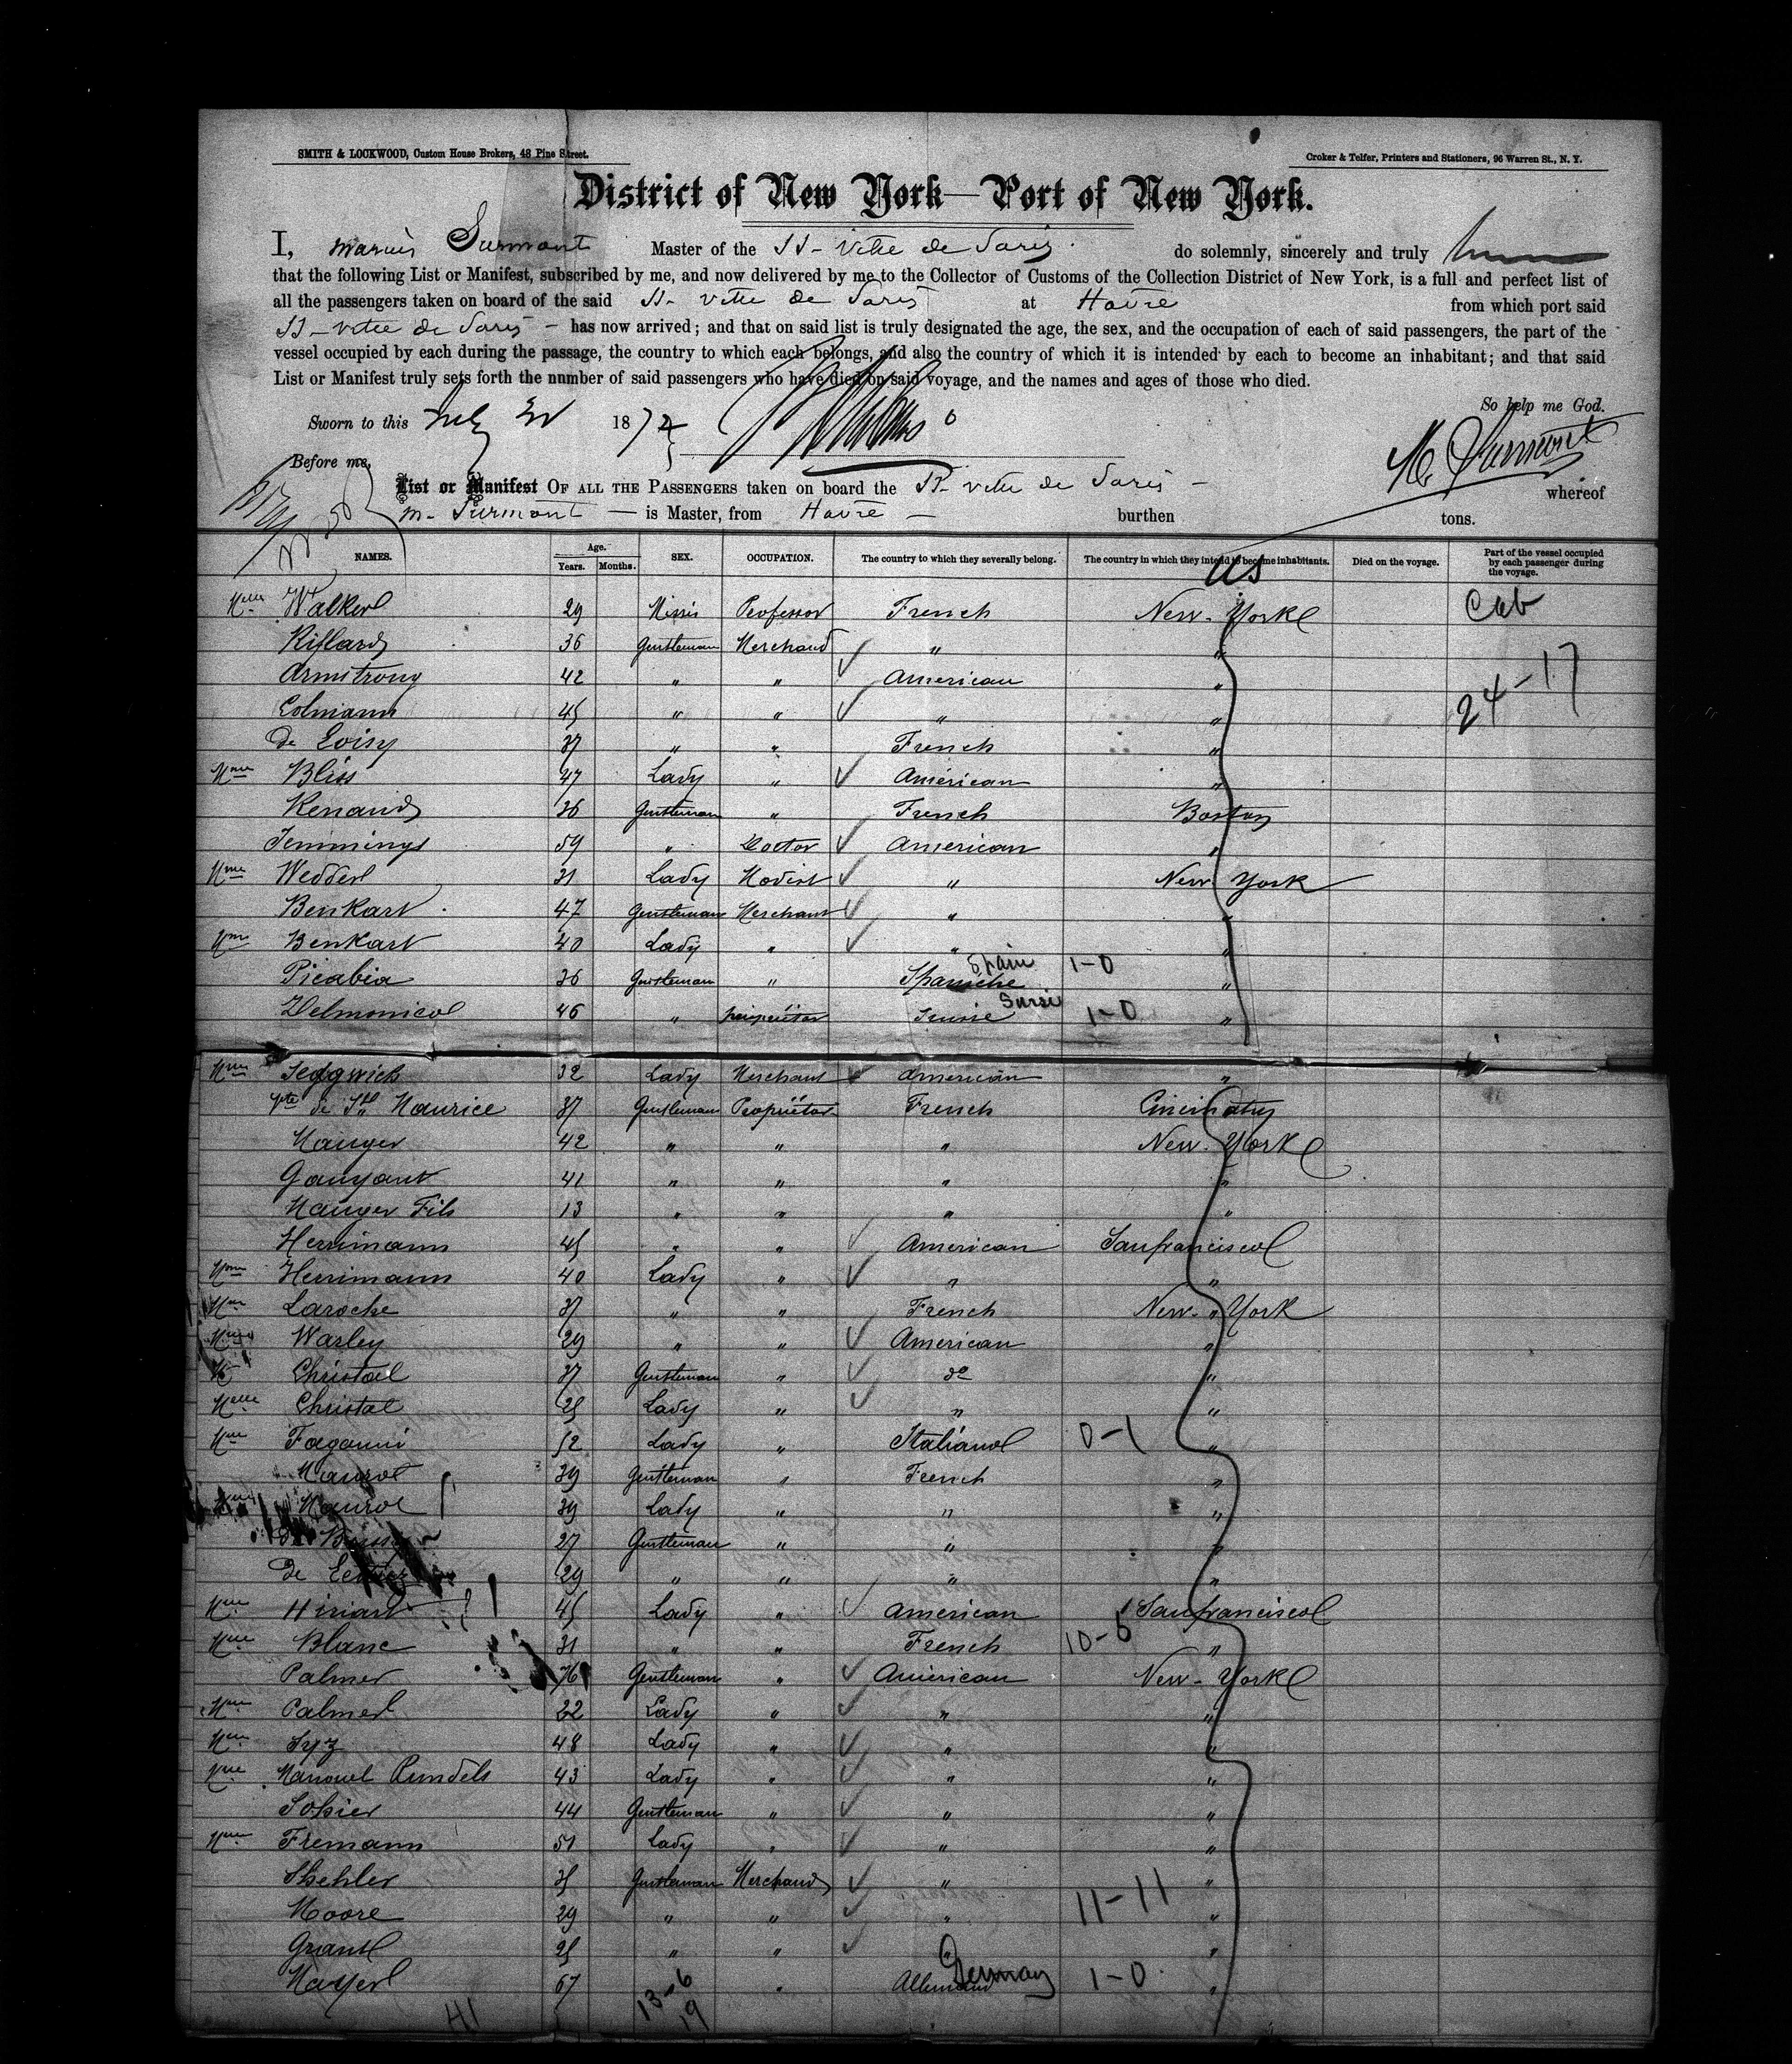 SMITH & LOCKWOOD, Custom House Brokers, 48 Pine Street.
Croker & Telfer, Printers and Stationers, 96 Warren St., N. Y.
District of New York—Port of New York.
I, Marius Surmont Master of the SS - Ville de Paris do solemnly, sincerely and truly
that the following List or Manifest, subscribed by me, and now delivered by me to the Collector of Customs of the Collection District of New York, is a full and perfect list of
all the passengers taken on board of the said SS - Ville de Paris at Havre from which port said
SS - Ville de Paris - has now arrived; and that on said list is truly designated the age, the sex, and the occupation of each of said passengers, the part of the
vessel occupied by each during the passage, the country to which each belongs, and also the country of which it is intended by each to become an inhabitant; and that said
List or Manifest truly sets forth the number of said passengers who have died on said voyage, and the names and ages of those who died.
So help me God.
Sworn to this July 187
M Surmont
Before me,
List or Manifest OF ALL THE PASSENGERS taken on board the SS - Ville de Paris - whereof
M. Surmont — is Master, from Havre — burthen tons.
NAMES. Age. Years. Months. SEX. OCCUPATION. The country to which they severally belong. The country in which they intend to become inhabitants. Died on the voyage. Part of the vessel occupied by each passenger during the voyage.
US
Melle Walker 29 Miss Professor French New-York Cab
36 Gentleman Merchand " "
Armstrong 42 " " American "
24-17
Colmann 45 " " " "
de Loisy 37 " " French "
Mme Bliss 47 Lady " American "
Renaud 36 Gentleman " French Boston
Jemmings 59 " Doctor American "
Mme Wedder 31 Lady Modist " New York
Benkart 47 Gentleman Merchant " "
Mme Benkart 40 Lady " " "
Spain 1-0
Picabia 36 Gentleman " Spaniche "
Delmonico 46 " 1-0 "
Mme Sedgwick 32 Lady Merchant American "
Vte de St Maurice 37 Gentleman Propriétor French Cincinaty
Mauger 42 " " " New-York
41 " " " "
Mauger Fils 13 " " " "
Herrimann 45 " " American Sanfrancisco
Mme Herrimann 40 Lady " " "
Mme Laroche 37 " " French New-York
Warley 29 " " American "
Christal 37 Gentleman " do "
Melle Christal 25 Lady " " "
Mme Faganni 52 Lady " Italiano 0-1 "
39 Gentleman " French "
39 Lady " " "
27 Gentleman " " "
de 29 " " " "
Mme Hiriart 45 Lady " American Sanfrancisco
Mme Blanc 31 " " French 10-5 "
Palmer 76 Gentleman " American New-York
Mme Palmer 22 Lady " " "
Mme Syz 48 Lady " " "
Mme Lady 43 " " "
Sohier 44 Gentleman " " "
Mme Fremann 51 Lady " " "
Shehler 35 Gentleman Merchand " "
11-11
Moore 29 " " " "
Grant 25 " " " "
Germany
Mayer 67 " Allemand 1-0 "
41 13-6
19